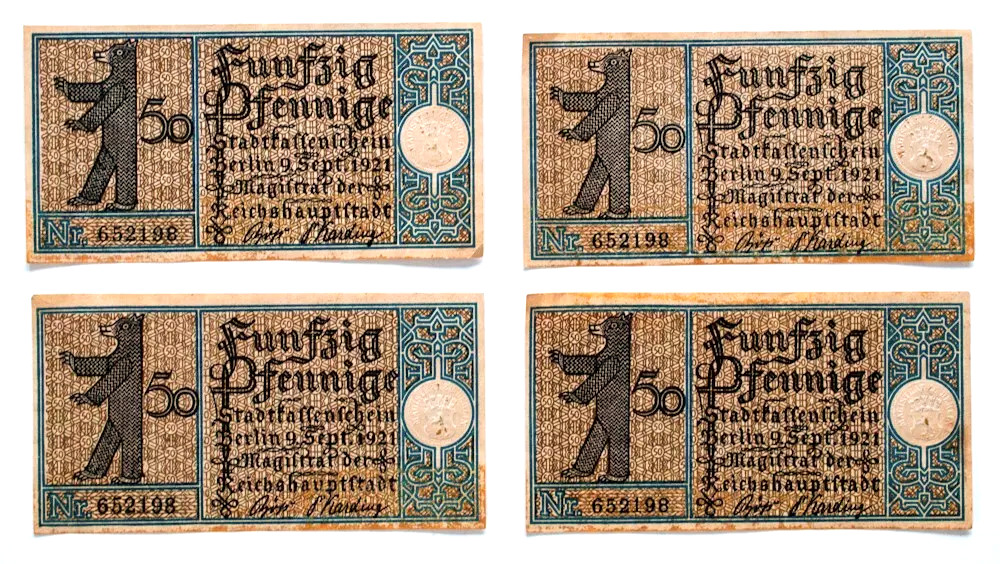 50
Funfzig
Pfennige
Stadtkassenschein
Berlin 9. Sept. 1921
Magistrat der
Reichshauptstadt
Nr. 652198
50
Funfzig
Pfennige
Stadtkassenschein
Berlin 9. Sept. 1921
Magistrat der
Reichshauptstadt
Nr. 652198
50
Funfzig
Pfennige
Stadtkassenschein
Berlin 9. Sept. 1921
Magistrat der
Reichshauptstadt
Nr. 652198
50
Funfzig
Pfennige
Stadtkassenschein
Berlin 9. Sept. 1921
Magistrat der
Reichshauptstadt
Nr. 652198